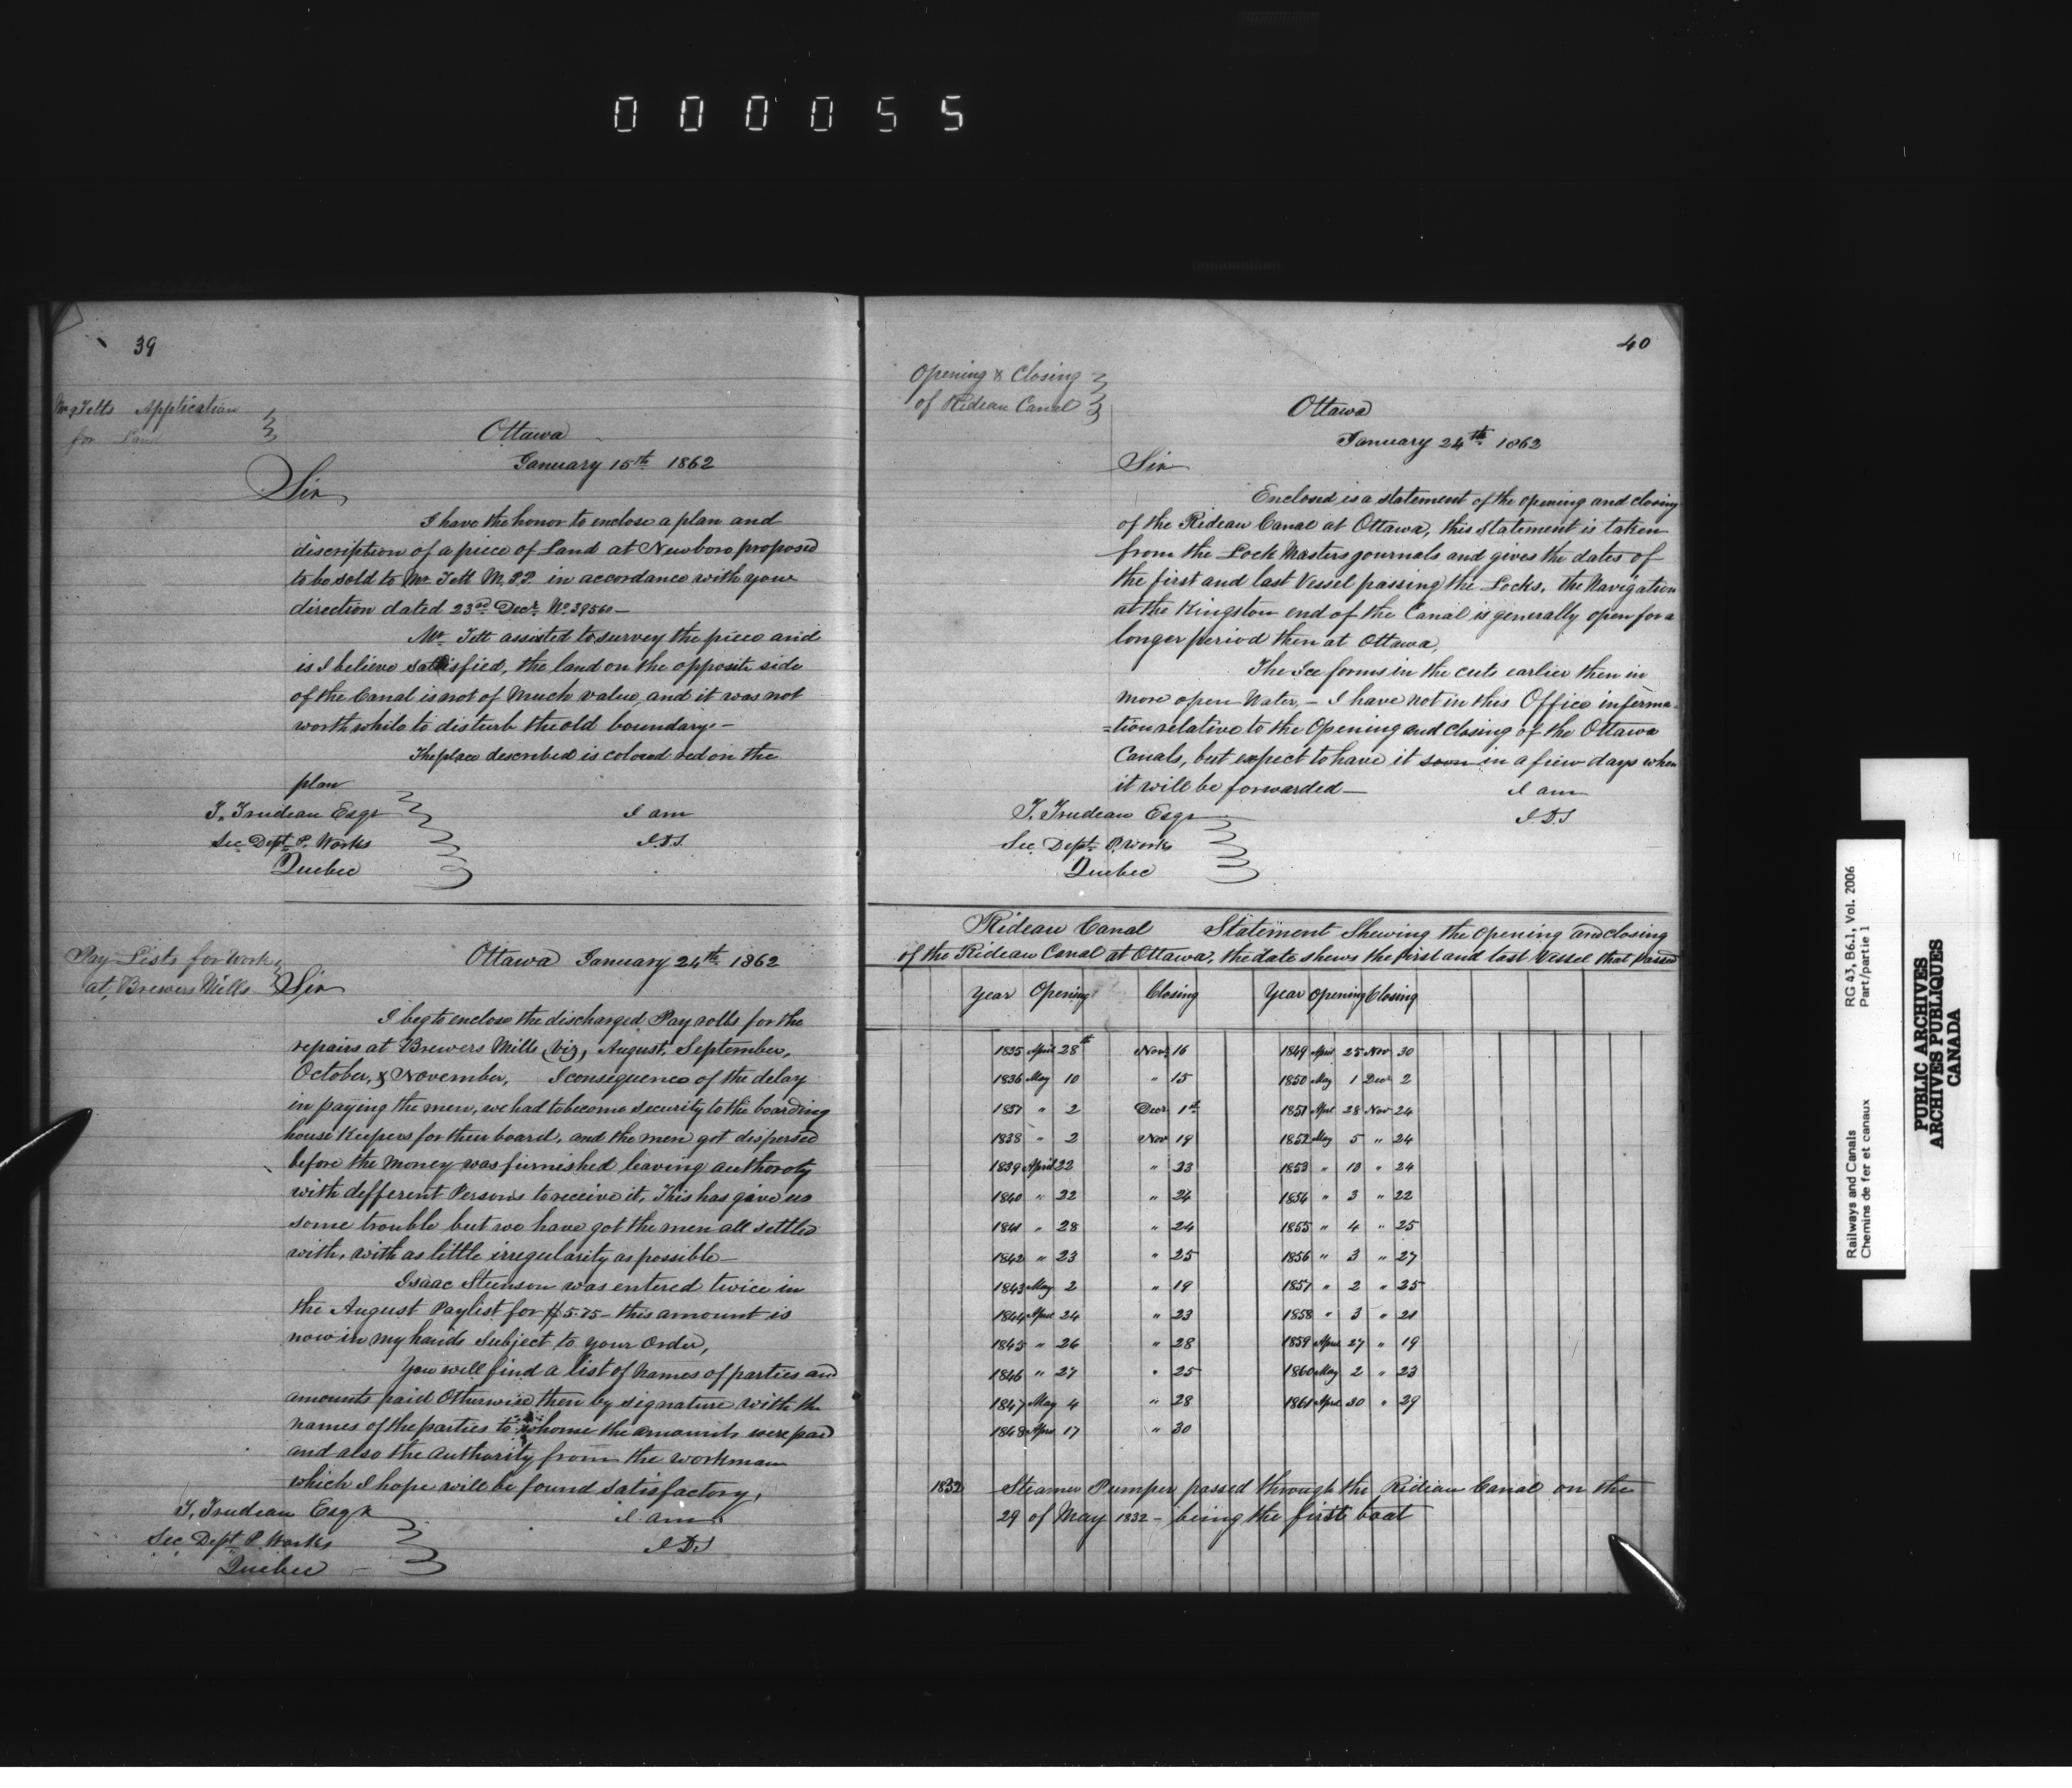 000055
39
Mr Tetts Application
for Land
Ottawa
January 15th 1862
Sir
I have the honor to enclose a plan and
discription of a piece of Land at Newboro proposed
to be sold to Mr Tett M.P.P. in accordance with your
direction dated 23rd Decr. No. 39560 —
Mr Tett assisted to survey the piece and
is I believe satisfied, the land on the opposite side
of the Canal is not of Much value, and it was not
worth while to disturb the old boundary —
The place described is colored red on the
plan
T. Trudeau Esqr
I am
Sec Dept P. Works
J.D.S
Quebec
Pay Lists for Work
at Brewers Mills
Ottawa January 24th 1862
Sir
I beg to enclose the discharged Pay rolls for the
repairs at Brewers Mills, viz, August, September,
October, & November, I consequence of the delay
in paying the men, we had to become security to the boarding
house Keepers for their board, and the men got dispersed
before the money was furnished leaving authoroty
with defferent Persons to receive it, This has give us
some trouble but we have got the men all settled
with, with as little irregularity as possible —
Isaac Steenson was entered twice in
the August Paylist for $5.75 — this amount is
now in my hands subject to your order,
You will find a list of names of parties and
amounts paid Otherwise then by signature with the
names of the parties to whome the amounts were paid
and also the Authority from the workman
which I hope will be found satisfactory,
T. Trudeau Esqr
I am
Sec Dept P. Works
J.D.S
Quebec
40
Opening & Closing
of Rideau Canal
Ottawa
January 24th 1862
Sir
Enclosed is a statement of the opening and closing
of the Rideau Canal at Ottawa, this statement is taken
from the Lock Masters journals and gives the dates of
the first and last Vessel passing the Locks, the Navigation
at the Kingston end of the Canal is generally open for a
longer period then at Ottawa,
The Ice forms in the cuts earlier then in
more open Water, — I have not in this Office informa-
=tion relative to the Opening and closing of the Ottawa
Canals, but expect to have it soon in a fiew days when
it will be forwarded —
I am
T. Trudeau Esqr
J.D.S
Sec Dept P. Works
Quebec
Rideau Canal Statement Shewing the opening and closing
of the Rideau Canal at Ottawa, the date shews the first and last Vessel that Passed
Year Opening Closing Year Opening Closing
1835 April 28th Novr 16 1849 April 25 Nov 30
1836 May 10 " 15 1850 May 1 Decr 2
1837 " 2 Decr 1st 1851 Aprl 28 Nov 24
1838 " 2 Nov 19 1852 May 5 " 24
1839 April 22 " 23 1853 " 10 " 24
1840 " 22 " 24 1854 " 3 " 22
1841 " 28 " 24 1855 " 4 " 25
1842 " 23 " 25 1856 " 3 " 27
1843 May 2 " 19 1857 " 2 " 25
1844 April 24 " 23 1858 " 3 " 21
1845 " 26 " 28 1859 Aprl 27 " 19
1846 " 27 " 25 1860 May 2 " 23
1847 May 4 " 28 1861 Aprl 30 " 29
1848 Aprl 17 " 30
1832 Steamer Pumper passed through the Rideau Canal on the
29 of May 1832 — being the first boat
Railways and Canals
Chemins de fer et canaux
RG 43, B6.1, Vol. 2006
Part/partie 1
PUBLIC ARCHIVES
ARCHIVES PUBLIQUES
CANADA